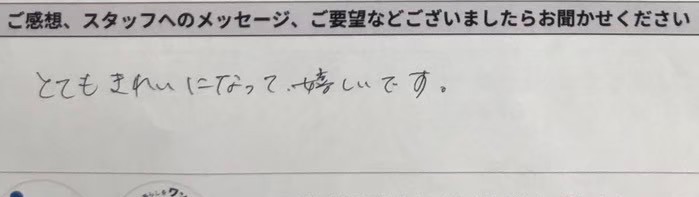 ご感想、スタッフへのメッセージ、ご要望などございましたらお聞かせください
とてもきれいになって、嬉しいです。